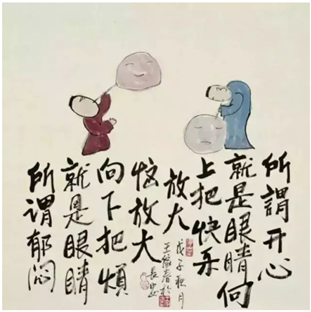 所謂开心
就是眼睛向
上把快乐
放大
所谓郁闷
就是眼睛
向下把烦
恼放大
戊子秋月